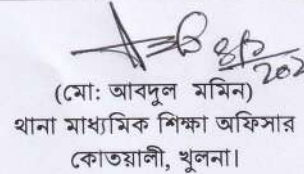 (মো: আবদুল মমিন)
থানা মাধ্যমিক শিক্ষা অফিসার
কোতয়ালী, খুলনা।